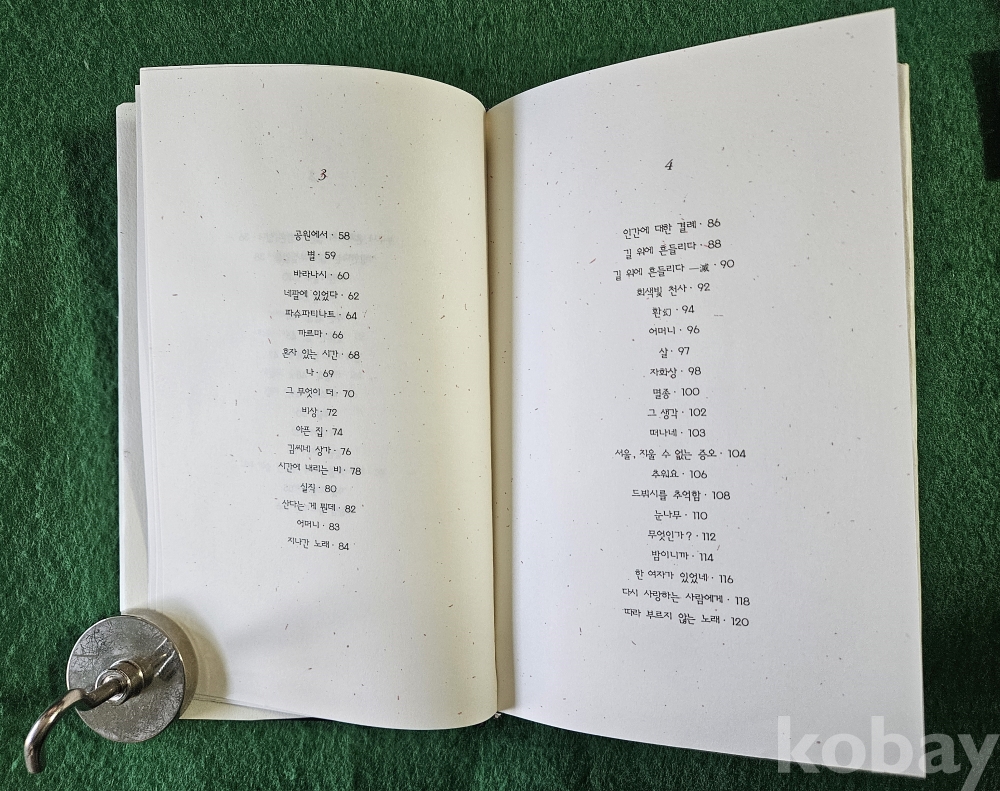 3
공원에서 · 58
별 · 59
바라나시 · 60
네팔에 있었다 · 62
파슈파티나트 · 64
까르마 · 66
혼자 있는 시간 · 68
나 · 69
그 무엇이 더 · 70
비상 · 72
아픈 집 · 74
김씨네 상가 · 76
시간에 내리는 비 · 78
실직 · 80
산다는 게 뭔데 · 82
어머니 · 83
지나간 노래 · 84
4
인간에 대한 결례 · 86
길 위에 흔들리다 · 88
길 위에 흔들리다 —滅 · 90
회색빛 천사 · 92
환幻 · 94
어머니 · 96
살 · 97
자화상 · 98
멸종 · 100
그 생각 · 102
떠나네 · 103
서울, 지울 수 없는 증오 · 104
추워요 · 106
드뷔시를 추억함 · 108
눈나무 · 110
무엇인가? · 112
밤이니까 · 114
한 여자가 있었네 · 116
다시 사랑하는 사람에게 · 118
따라 부르지 않는 노래 · 120
kobay